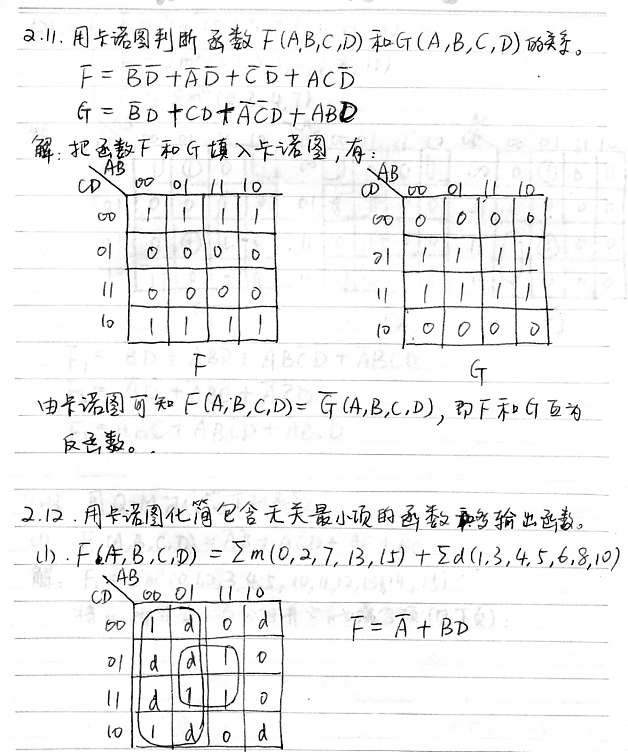 2.11. 用卡诺图判断函数 F(A,B,C,D) 和G(A,B,C,D) 的关系。
F = B̅D̅ + A̅D̅ + C̅D̅ + ACD̅
G = B̅D + CD + A̅C̅D + ABD
解: 把函数F 和 G 填入卡诺图,有:
AB AB
CD 00 01 11 10 CD 00 01 11 10
00 1 1 1 1 00 0 0 0 0
01 0 0 0 0 01 1 1 1 1
11 0 0 0 0 11 1 1 1 1
10 1 1 1 1 10 0 0 0 0
F G
由卡诺图可知 F(A,B,C,D) = G̅(A,B,C,D), 即F和G互为
反函数。
2.12. 用卡诺图化简包含无关最小项的函数和多输出函数。
(1). F(A,B,C,D) = Σm(0,2,7,13,15) + Σd(1,3,4,5,6,8,10)
AB
CD 00 01 11 10
00 1 d 0 d F = A̅ + BD
01 d d 1 0
11 d 1 1 0
10 1 d 0 d